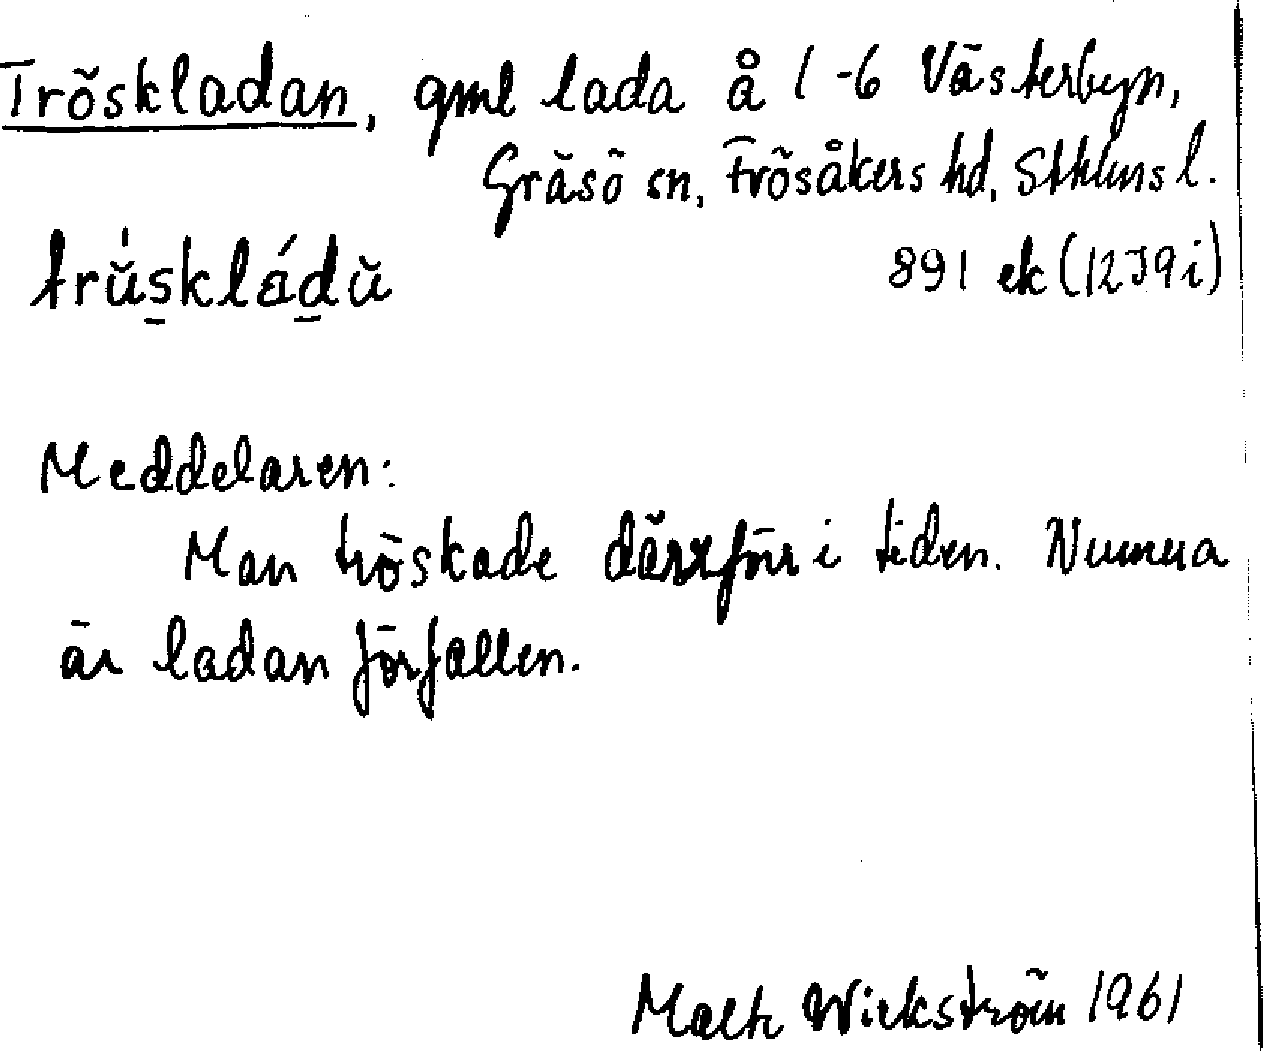 Tröskladan, gml lada å 1-6 Västerbyn,
Gräsö sn, Frösåkers hd, Sthlms l.
891 ek (12J9i)
Meddelaren:
Man tröskade där förr i tiden. Numera
är ladan förfallen.
Malte Wickström 1961